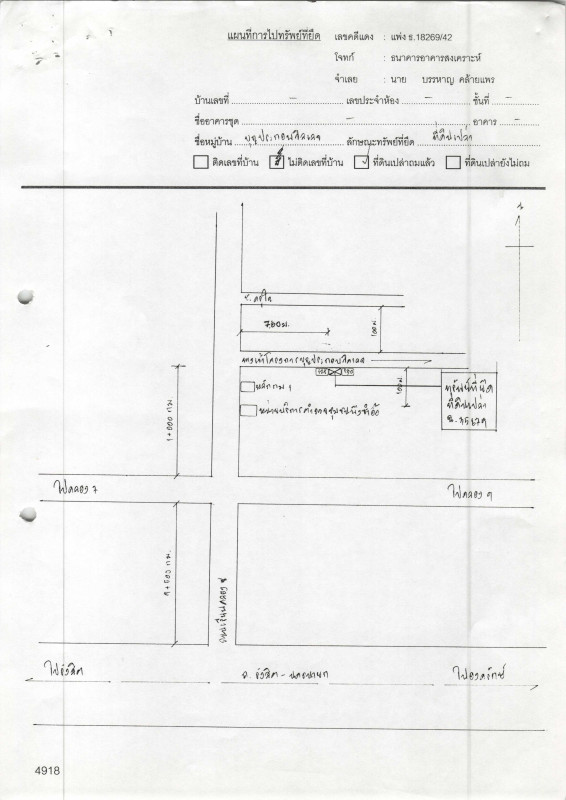 แผนที่การไปทรัพย์ที่ยึด เลขคดีแดง : แพ่ง ธ.18269/42
โจทก์ : ธนาคารอาคารสงเคราะห์
จำเลย : นาย บรรหาญ คล้ายแพร
บ้านเลขที่ – เลขประจำห้อง – ชั้นที่ –
ชื่ออาคารชุด – อาคาร –
ชื่อหมู่บ้าน ลักษณะทรัพย์ที่ยึด ที่ดินเปล่า
ติดเลขที่บ้าน ไม่ติดเลขที่บ้าน ที่ดินเปล่าถมแล้ว ที่ดินเปล่ายังไม่ถม
700 ม.
100 ม.
ทางเข้าโครงการ
ทรัพย์ที่ยึด
ที่ดินเปล่า
หลัก กม 1
100 ม
หน่วยบริการ
1+000 กม
ไปคลอง 7
ไปคลอง 9
ถนนเลียบคลอง 8
ไปรังสิต
ถ. รังสิต - นครนายก
ไปองครักษ์
4918